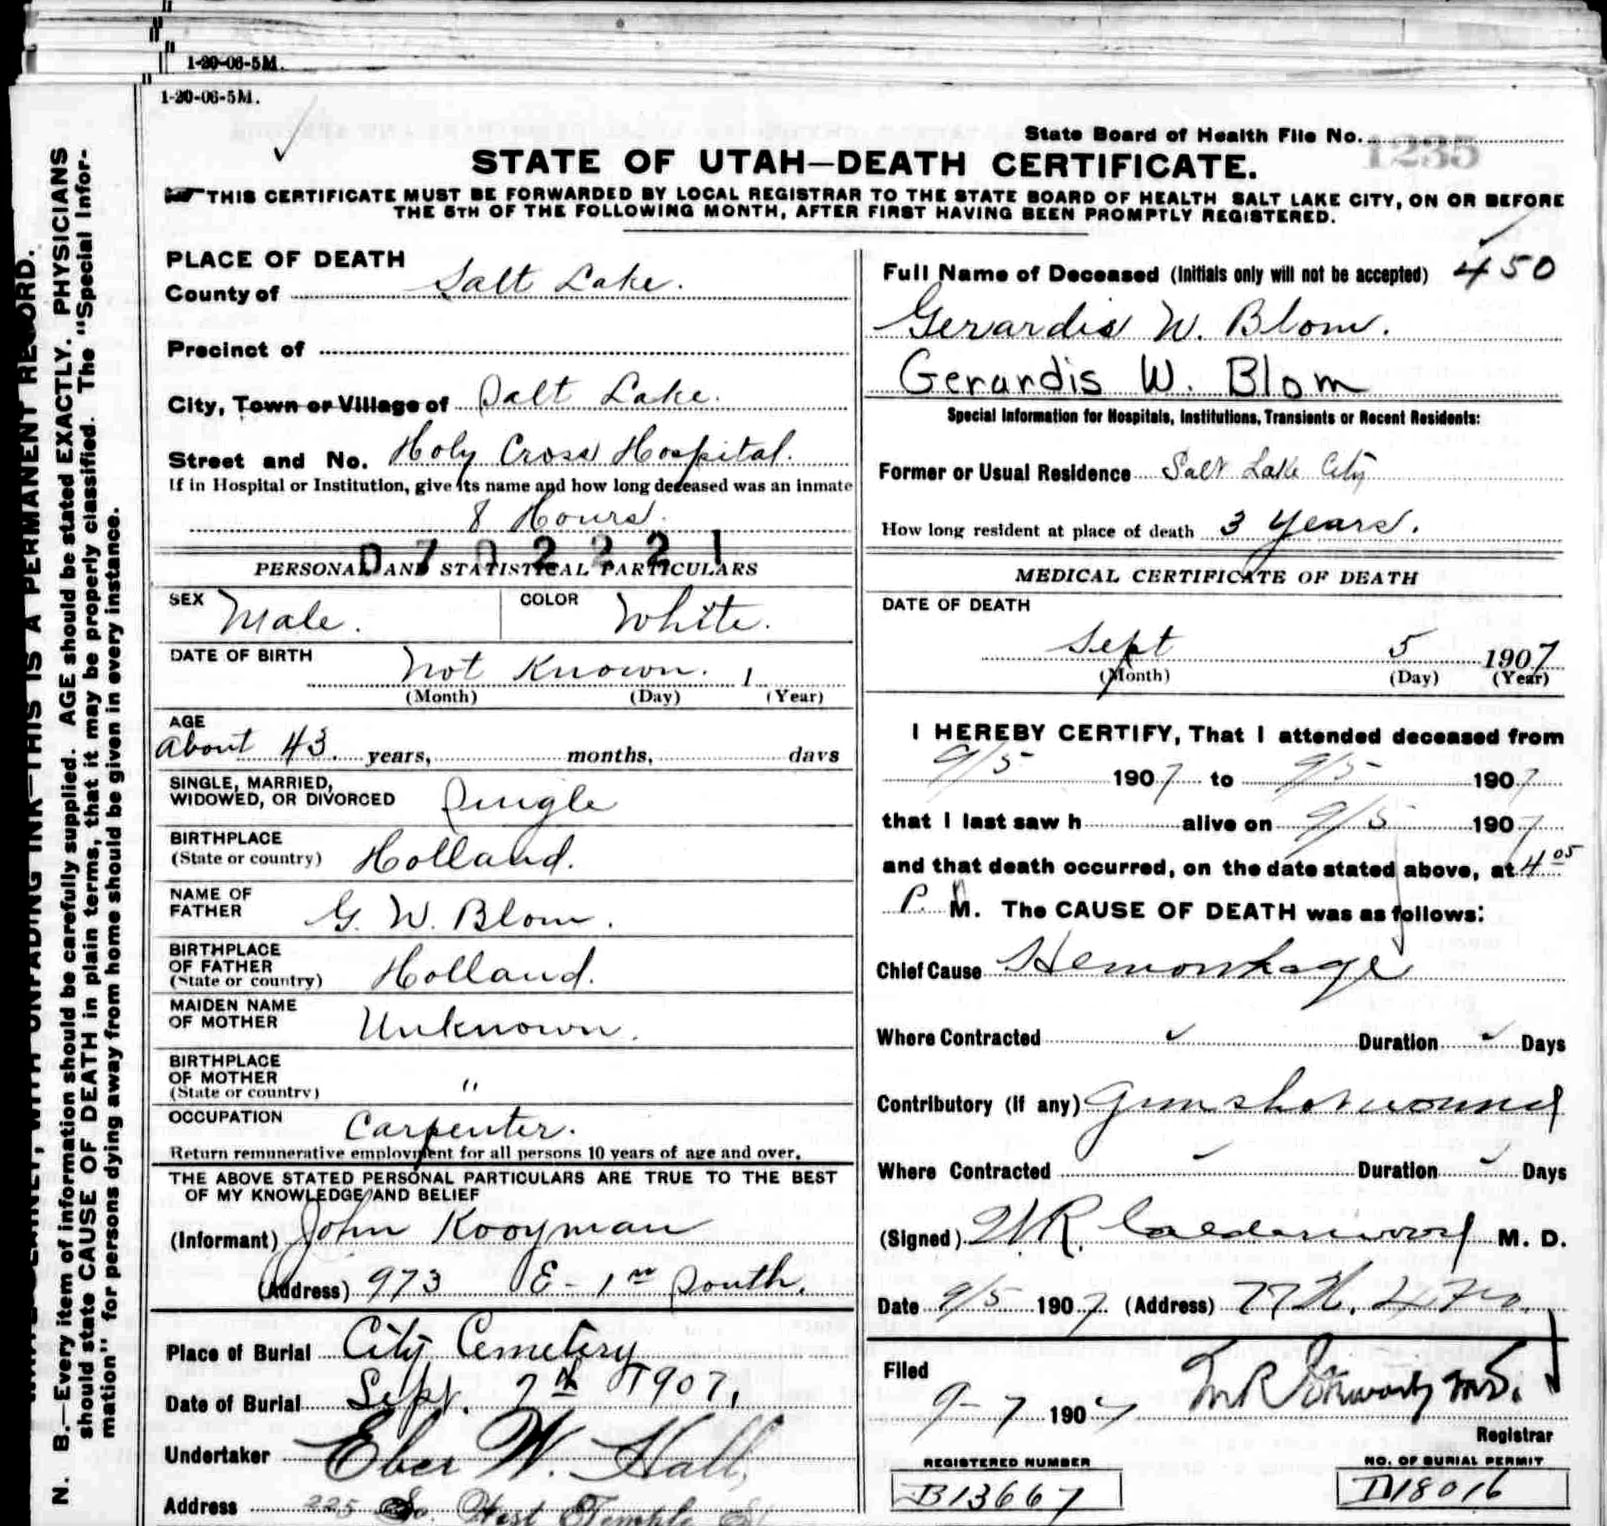 1-20-06-5M.
1-20-06-5M.
State Board of Health File No. 1235
STATE OF UTAH—DEATH CERTIFICATE.
THIS CERTIFICATE MUST BE FORWARDED BY LOCAL REGISTRAR TO THE STATE BOARD OF HEALTH SALT LAKE CITY, ON OR BEFORE
THE 5TH OF THE FOLLOWING MONTH, AFTER FIRST HAVING BEEN PROMPTLY REGISTERED.
N. B.—Every item of information should be carefully supplied. AGE should be stated EXACTLY. PHYSICIANS
should state CAUSE OF DEATH in plain terms, that it may be properly classified. The "Special Infor-
mation" for persons dying away from home should be given in every instance.
WITH UNFADING INK—THIS IS A PERMANENT RECORD.
PLACE OF DEATH
County of Salt Lake.
Precinct of
City, Town or Village of Salt Lake.
Street and No. Holy Cross Hospital.
If in Hospital or Institution, give its name and how long deceased was an inmate
8 Hours.
0702221
PERSONAL AND STATISTICAL PARTICULARS
SEX Male.
COLOR White.
DATE OF BIRTH Not Known. 1
(Month) (Day) (Year)
AGE
About 43 years, months, days
SINGLE, MARRIED,
WIDOWED, OR DIVORCED Single
BIRTHPLACE
(State or country) Holland.
NAME OF
FATHER G. W. Blom.
BIRTHPLACE
OF FATHER
(State or country) Holland.
MAIDEN NAME
OF MOTHER Unknown.
BIRTHPLACE
OF MOTHER
(State or country) "
OCCUPATION Carpenter.
Return remunerative employment for all persons 10 years of age and over.
THE ABOVE STATED PERSONAL PARTICULARS ARE TRUE TO THE BEST
OF MY KNOWLEDGE AND BELIEF
(Informant) John Kooyman
(Address) 973 E - 1st South.
Place of Burial City Cemetery
Date of Burial Sept. 7th 1907.
Undertaker Eber W. Hall,
Address 225 So. West Temple St
Full Name of Deceased (Initials only will not be accepted) 450
Gerardis W. Blom.
Gerardis W. Blom
Special Information for Hospitals, Institutions, Transients or Recent Residents:
Former or Usual Residence Salt Lake City
How long resident at place of death 3 years.
MEDICAL CERTIFICATE OF DEATH
DATE OF DEATH
Sept 5 1907
(Month) (Day) (Year)
I HEREBY CERTIFY, That I attended deceased from
9/5 1907 to 9/5 1907
that I last saw h alive on 9/5 1907
and that death occurred, on the date stated above, at 4 05
P. M. The CAUSE OF DEATH was as follows:
Chief Cause Hemorrhage
Where Contracted Duration Days
Contributory (if any) Gunshot wound
Where Contracted Duration Days
(Signed) W.R. Calderwood M. D.
Date 9/5 1907 (Address)
Filed
9-7 1907
Registrar
REGISTERED NUMBER
B13667
NO. OF BURIAL PERMIT
D18016